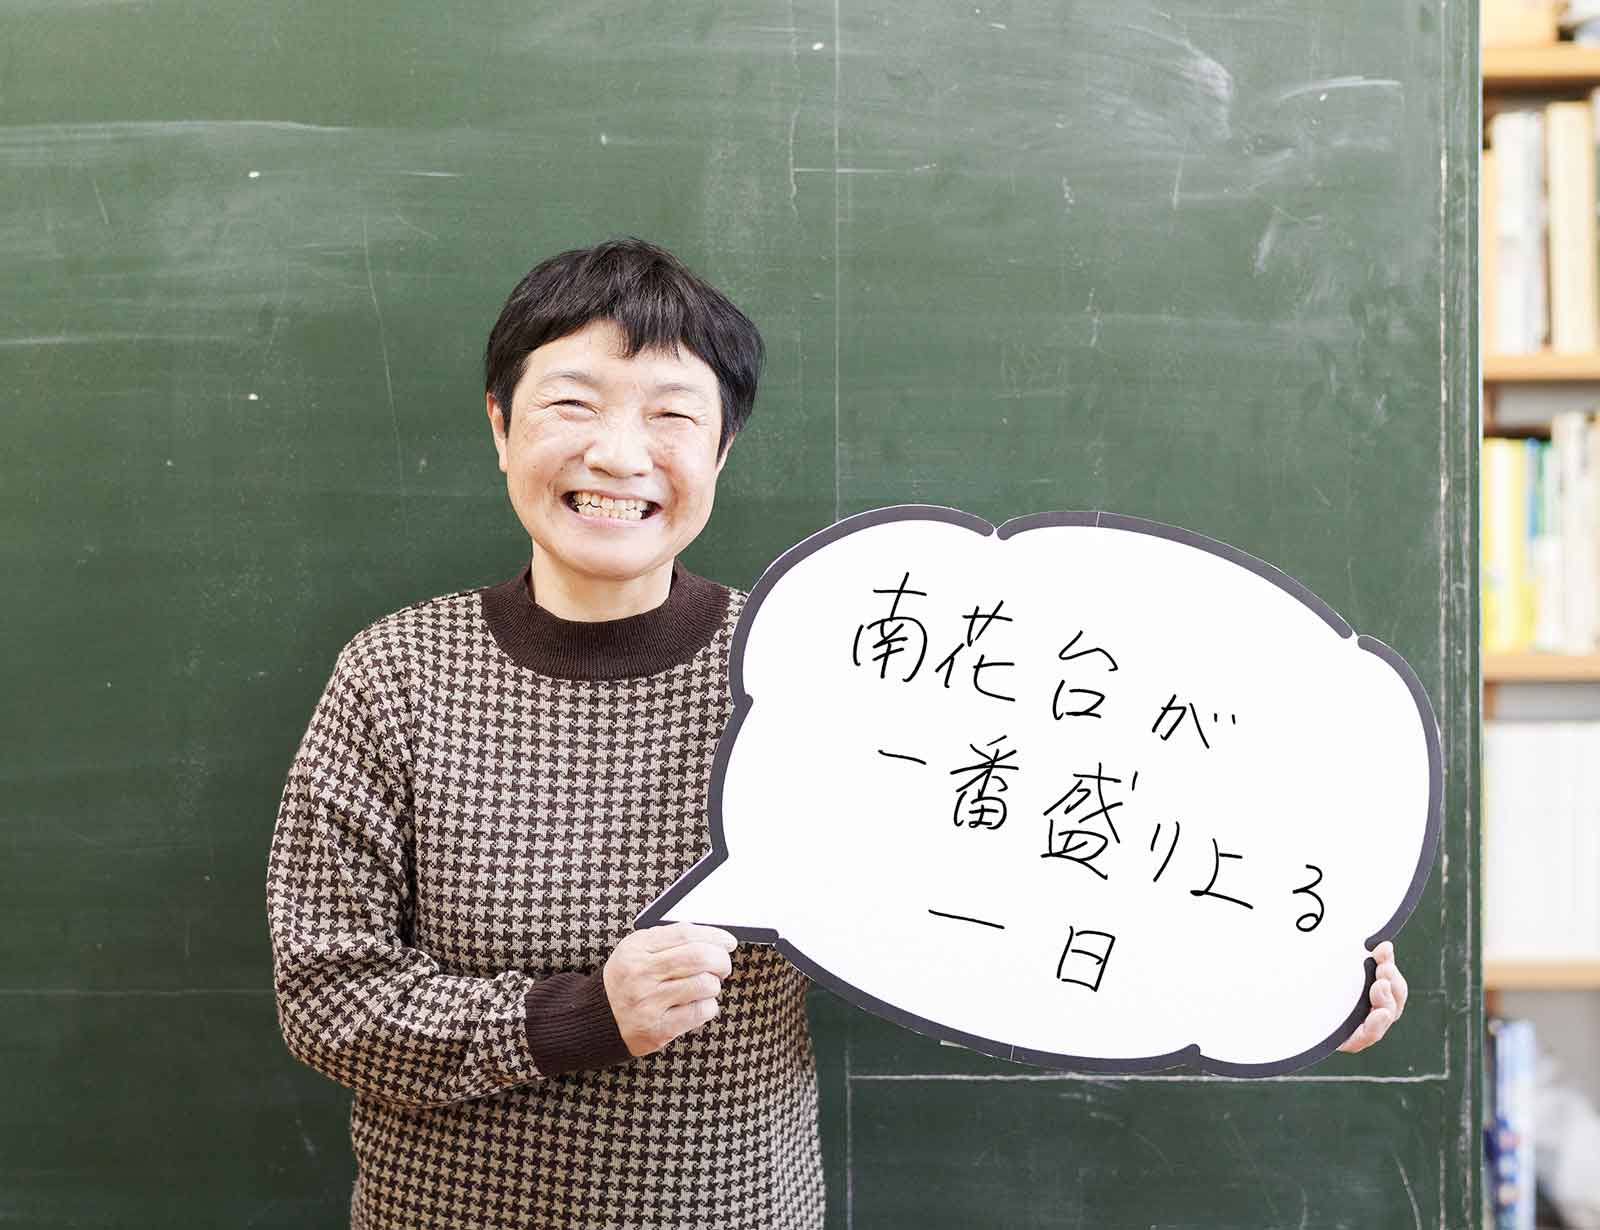 南花台が
一番盛り上る
一日